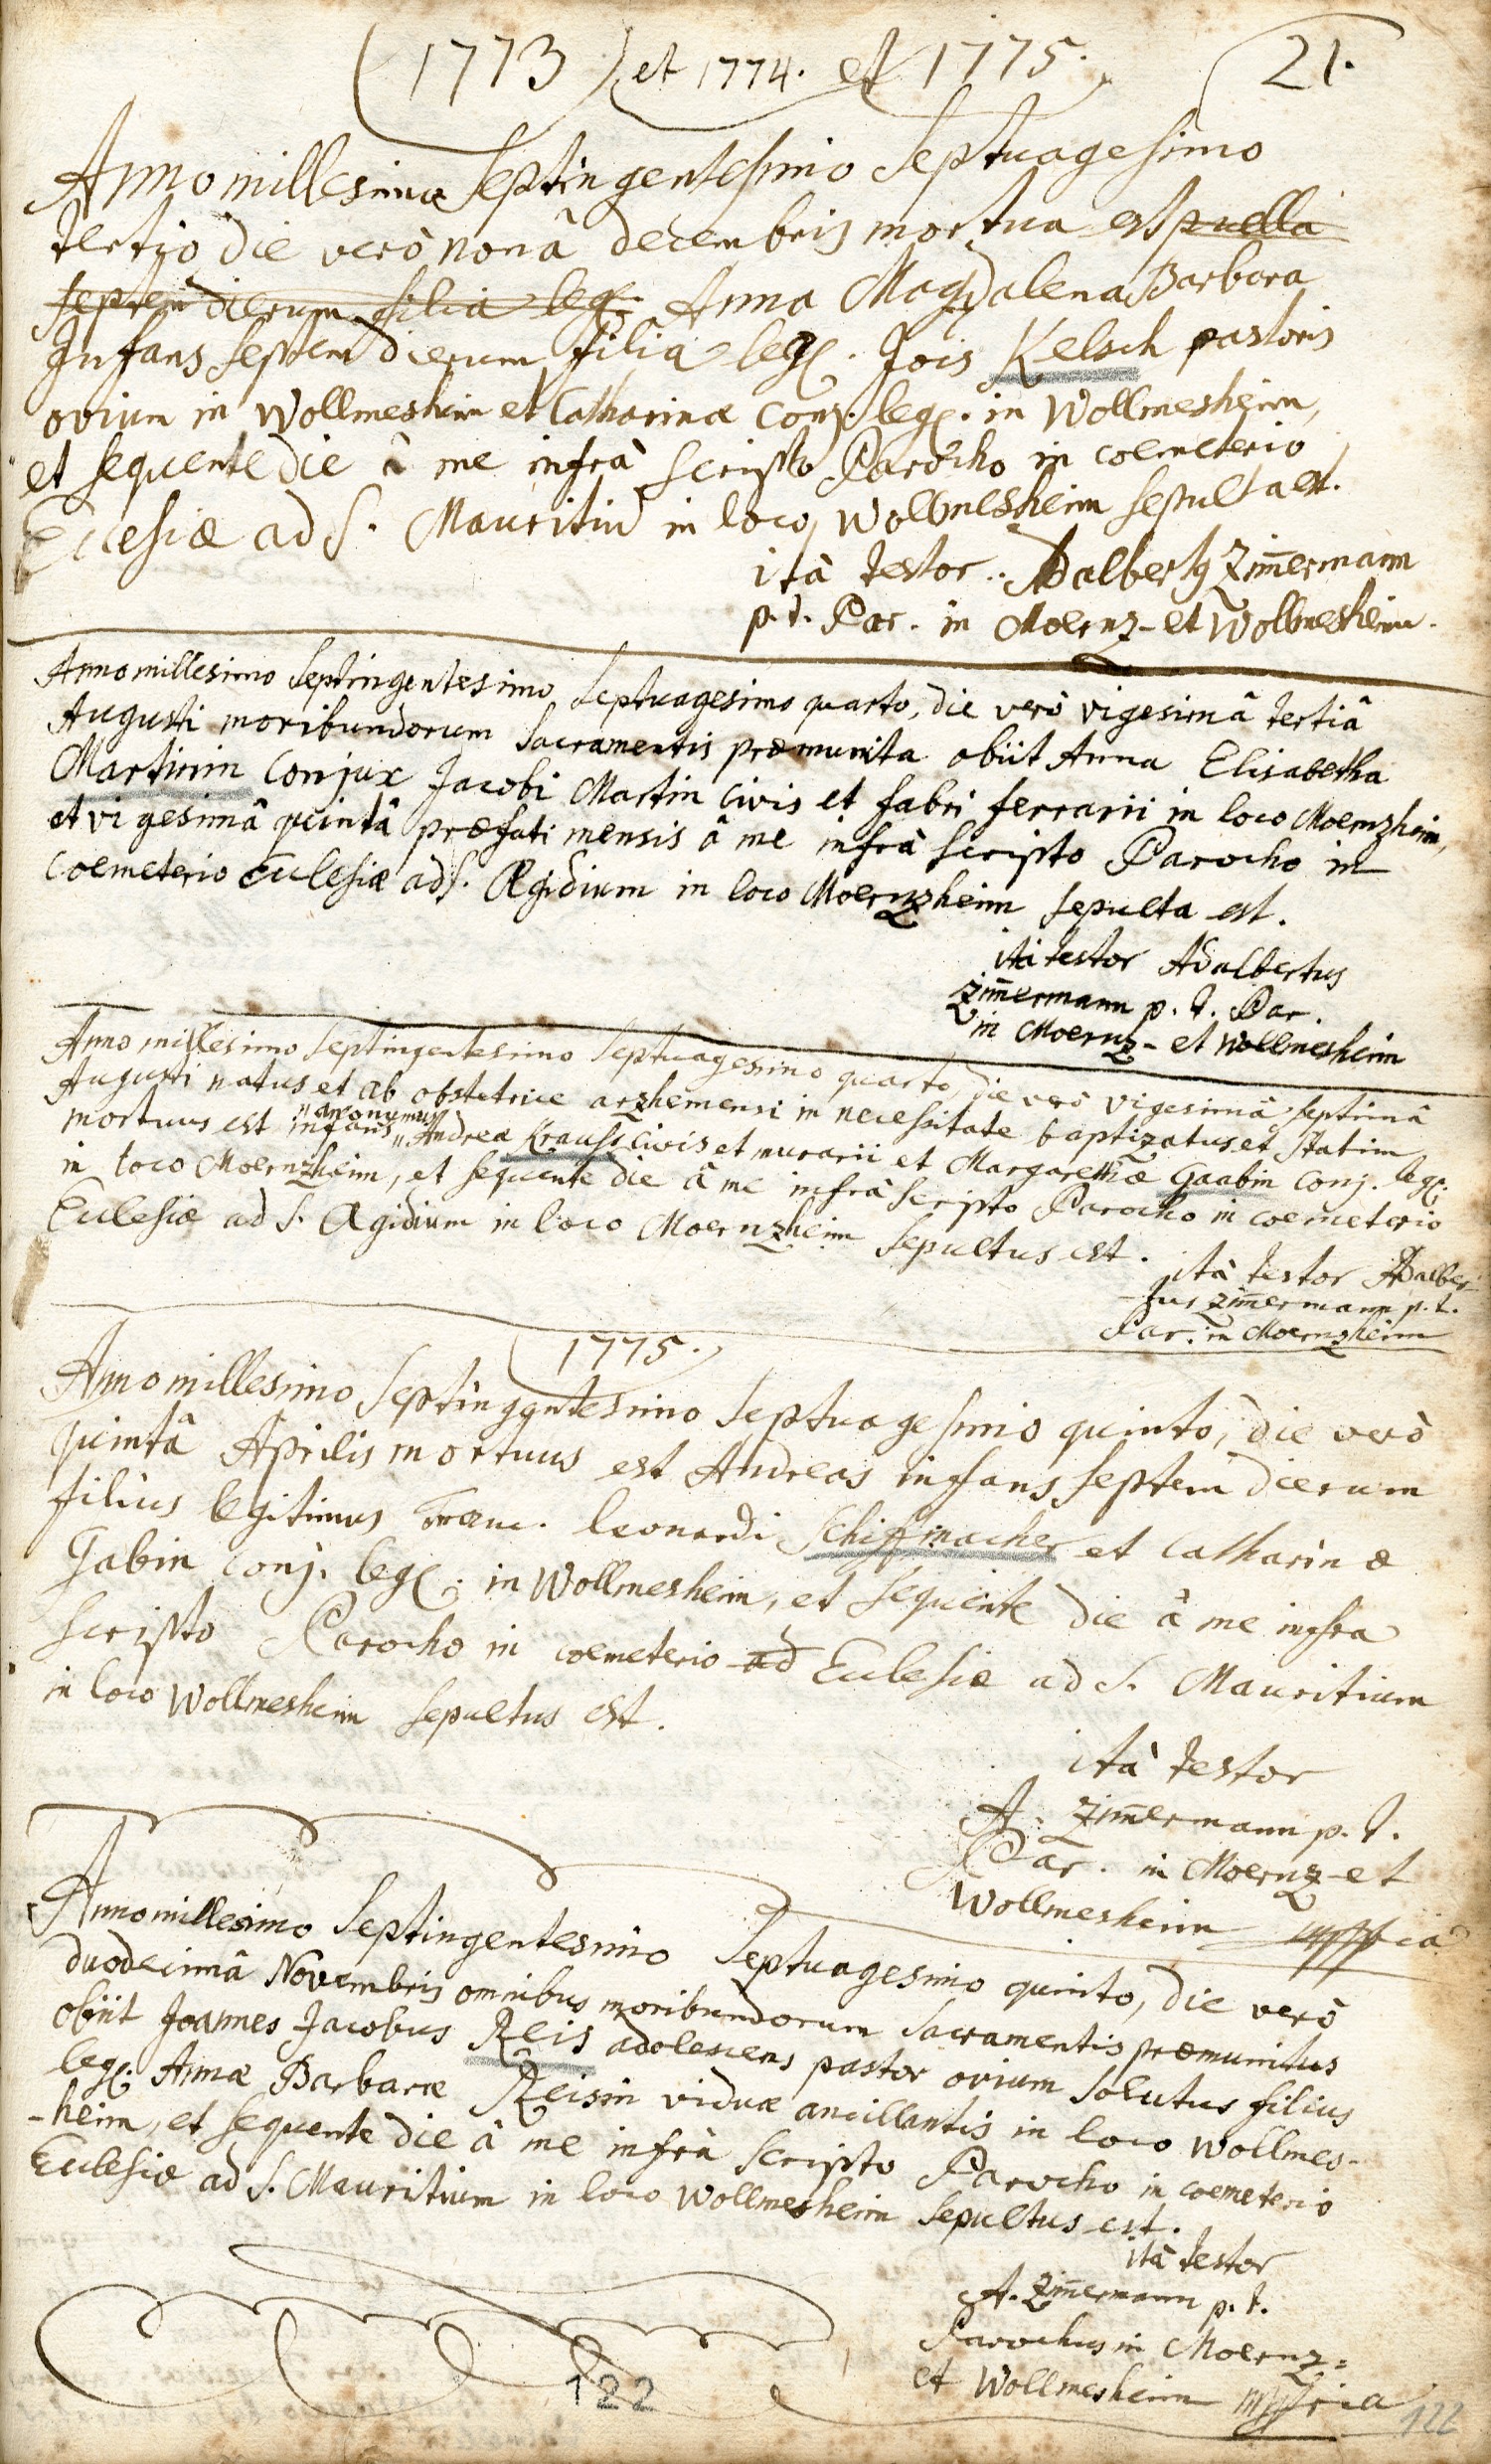 1773 et 1774. et 1775.
21.
Anno millesimo Septingentesimo Septuagesimo
tertio die verò nonâ decembris mortua est puella
septem dierum filia leg. Anna Magdalena Barbara
Infans septem dierum filia leg. Jois Kelsch pastoris
ovium in Wollmesheim et Catharinæ conj. leg. in Wollmesheim,
et sequente die â me infrà scripto Parocho in coemeterio
Ecclesiæ ad S. Mauritiũ in loco Wollmesheim sepulta est.
ità testor Adalbertg Zim̄ermann
p. t. Par. in Moernz- et Wollmesheim.
Anno millesimo Septingentesimo Septuagesimo quarto, die verò vigesimâ tertiâ
Augusti moribundorum Sacramentis præmunita obiit Anna Elisabetha
Martinin Conjux Jacobi Martin civis et fabri ferrarii in loco Moernzheim,
et vigesimâ quintâ præfati mensis â me infrà scripto Parocho in
coemeterio Ecclesiæ ad S. Ægidium in loco Moernzheim sepulta est.
ità testor Adalbertus
Zim̄ermann p. t. Par.
in Moernz- et Wollmesheim
Anno millesimo Septingentesimo Septuagesimo quarto, die verò vigesimâ septimâ
Augusti natus et ab obstetrice arzhemensi in necessitate baptizatus et statim
"anonymus"
mortuus est infans "Andreæ Krauss civis et murarii et Margarethæ Gaabin conj. leg.
in loco Moernzheim, et sequente die â me infrà scripto Parocho in coemeterio
Ecclesiæ ad S. Ægidium in loco Moernzheim sepultus est.
ità testor Adalber-
-tus Zim̄ermann p. t.
Par. in Moernzheim
1775.
Anno millesimo Septingentesimo Septuagesimo quinto, die verò
quintâ Aprilis mortuus est Andreas infans septem dierum
filius legitimus Franc. Leonardi Schiffmacher et Catharinæ
Gabin conj. leg. in Wollmesheim, et sequente die â me infra
scripto Parocho in coemeterio ad Ecclesiæ ad S. Mauritium
in loco Wollmesheim sepultus est.
ità testor
A. Zim̄ermann p. t.
Par. in Moernz- et
Wollmesheim mppria
Anno millesimo Septingentesimo Septuagesimo quinto, die verò
duodecimâ Novembris omnibus moribundorum Sacramentis præmunitus
obiit Joannes Jacobus Reis adolescens pastor ovium solutus filius
leg. Annæ Barbaræ Reisin viduæ ancillantis in loco Wollmes-
-heim, et sequente die â me infrà scripto Parocho in coemeterio
Ecclesiæ ad S. Mauritium in loco Wollmesheim sepultus est.
ità testor
A. Zim̄ermann p. t.
Parochus in Moernz=
et Wollmesheim mppria
122
122